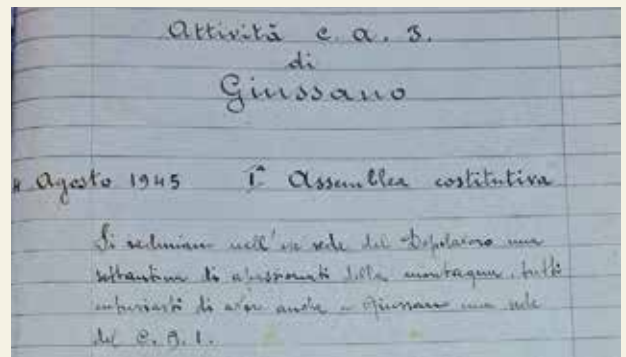 Attività C.A.I.
di
Giussano
Agosto 1945 Iª Assemblea costitutiva
Si radunano nell'ex sede del Dopolavoro una
settantina di appassionati della montagna, tutti
entusiasti di aver anche a Giussano una sede
del C.A.I.